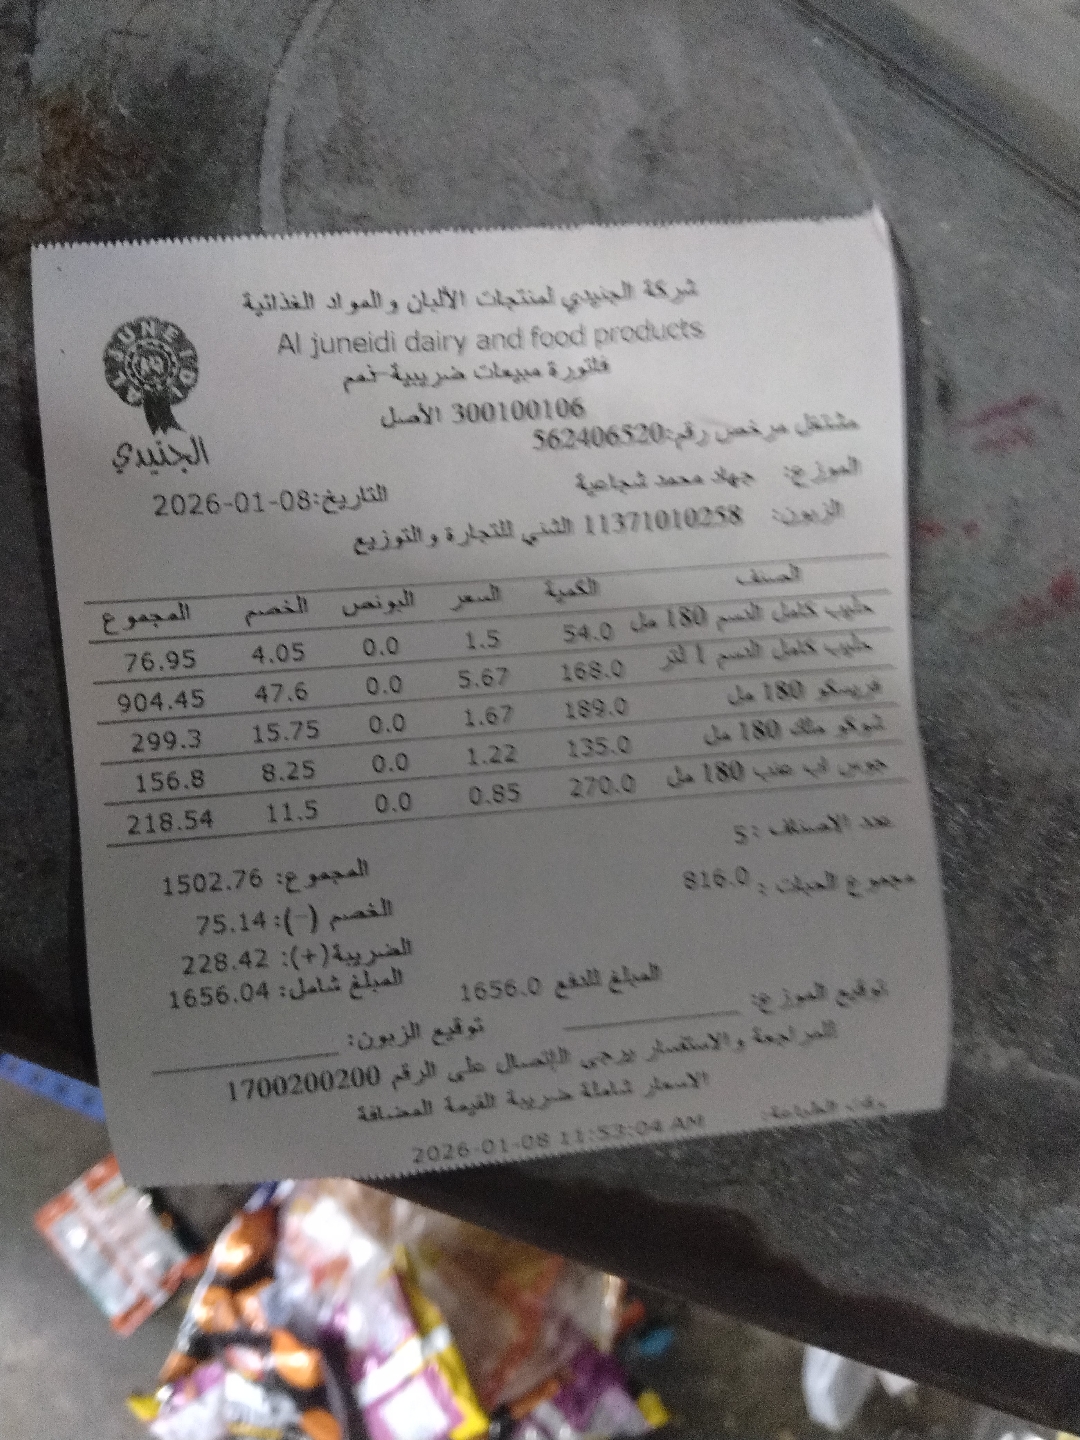 شركة الجنيدي لمنتجات الألبان والمواد الغذائية
Al juneidi dairy and food products
فاتورة مبيعات ضريبية-ذمم
300100106 الأصل
AL JUNEIDI
الجنيدي
مشتغل مرخص رقم:562406520
الموزع: جهاد محمد شجاعية
التاريخ:2026-01-08
الزبون: 11371010258 الشني للتجارة والتوزيع
الصنف الكمية السعر البونص الخصم المجموع
حليب كامل الدسم 180 مل 54.0 1.5 0.0 4.05 76.95
حليب كامل الدسم 1 لتر 168.0 5.67 0.0 47.6 904.45
فريسكو 180 مل 189.0 1.67 0.0 15.75 299.3
شوكو ملك 180 مل 135.0 1.22 0.0 8.25 156.8
جوس اب عنب 180 مل 270.0 0.85 0.0 11.5 218.54
عدد الاصناف :5
المجموع: 1502.76
مجموع الحبات : 816.0
الخصم (-): 75.14
الضريبة(+): 228.42
المبلغ شامل: 1656.04
المبلغ للدفع 1656.0
توقيع الموزع:
توقيع الزبون:
للمراجعة والاستفسار يرجى الإتصال على الرقم 1700200200
الاسعار شاملة ضريبة القيمة المضافة
وقت الطباعة: 2026-01-08 11:53:04 AM